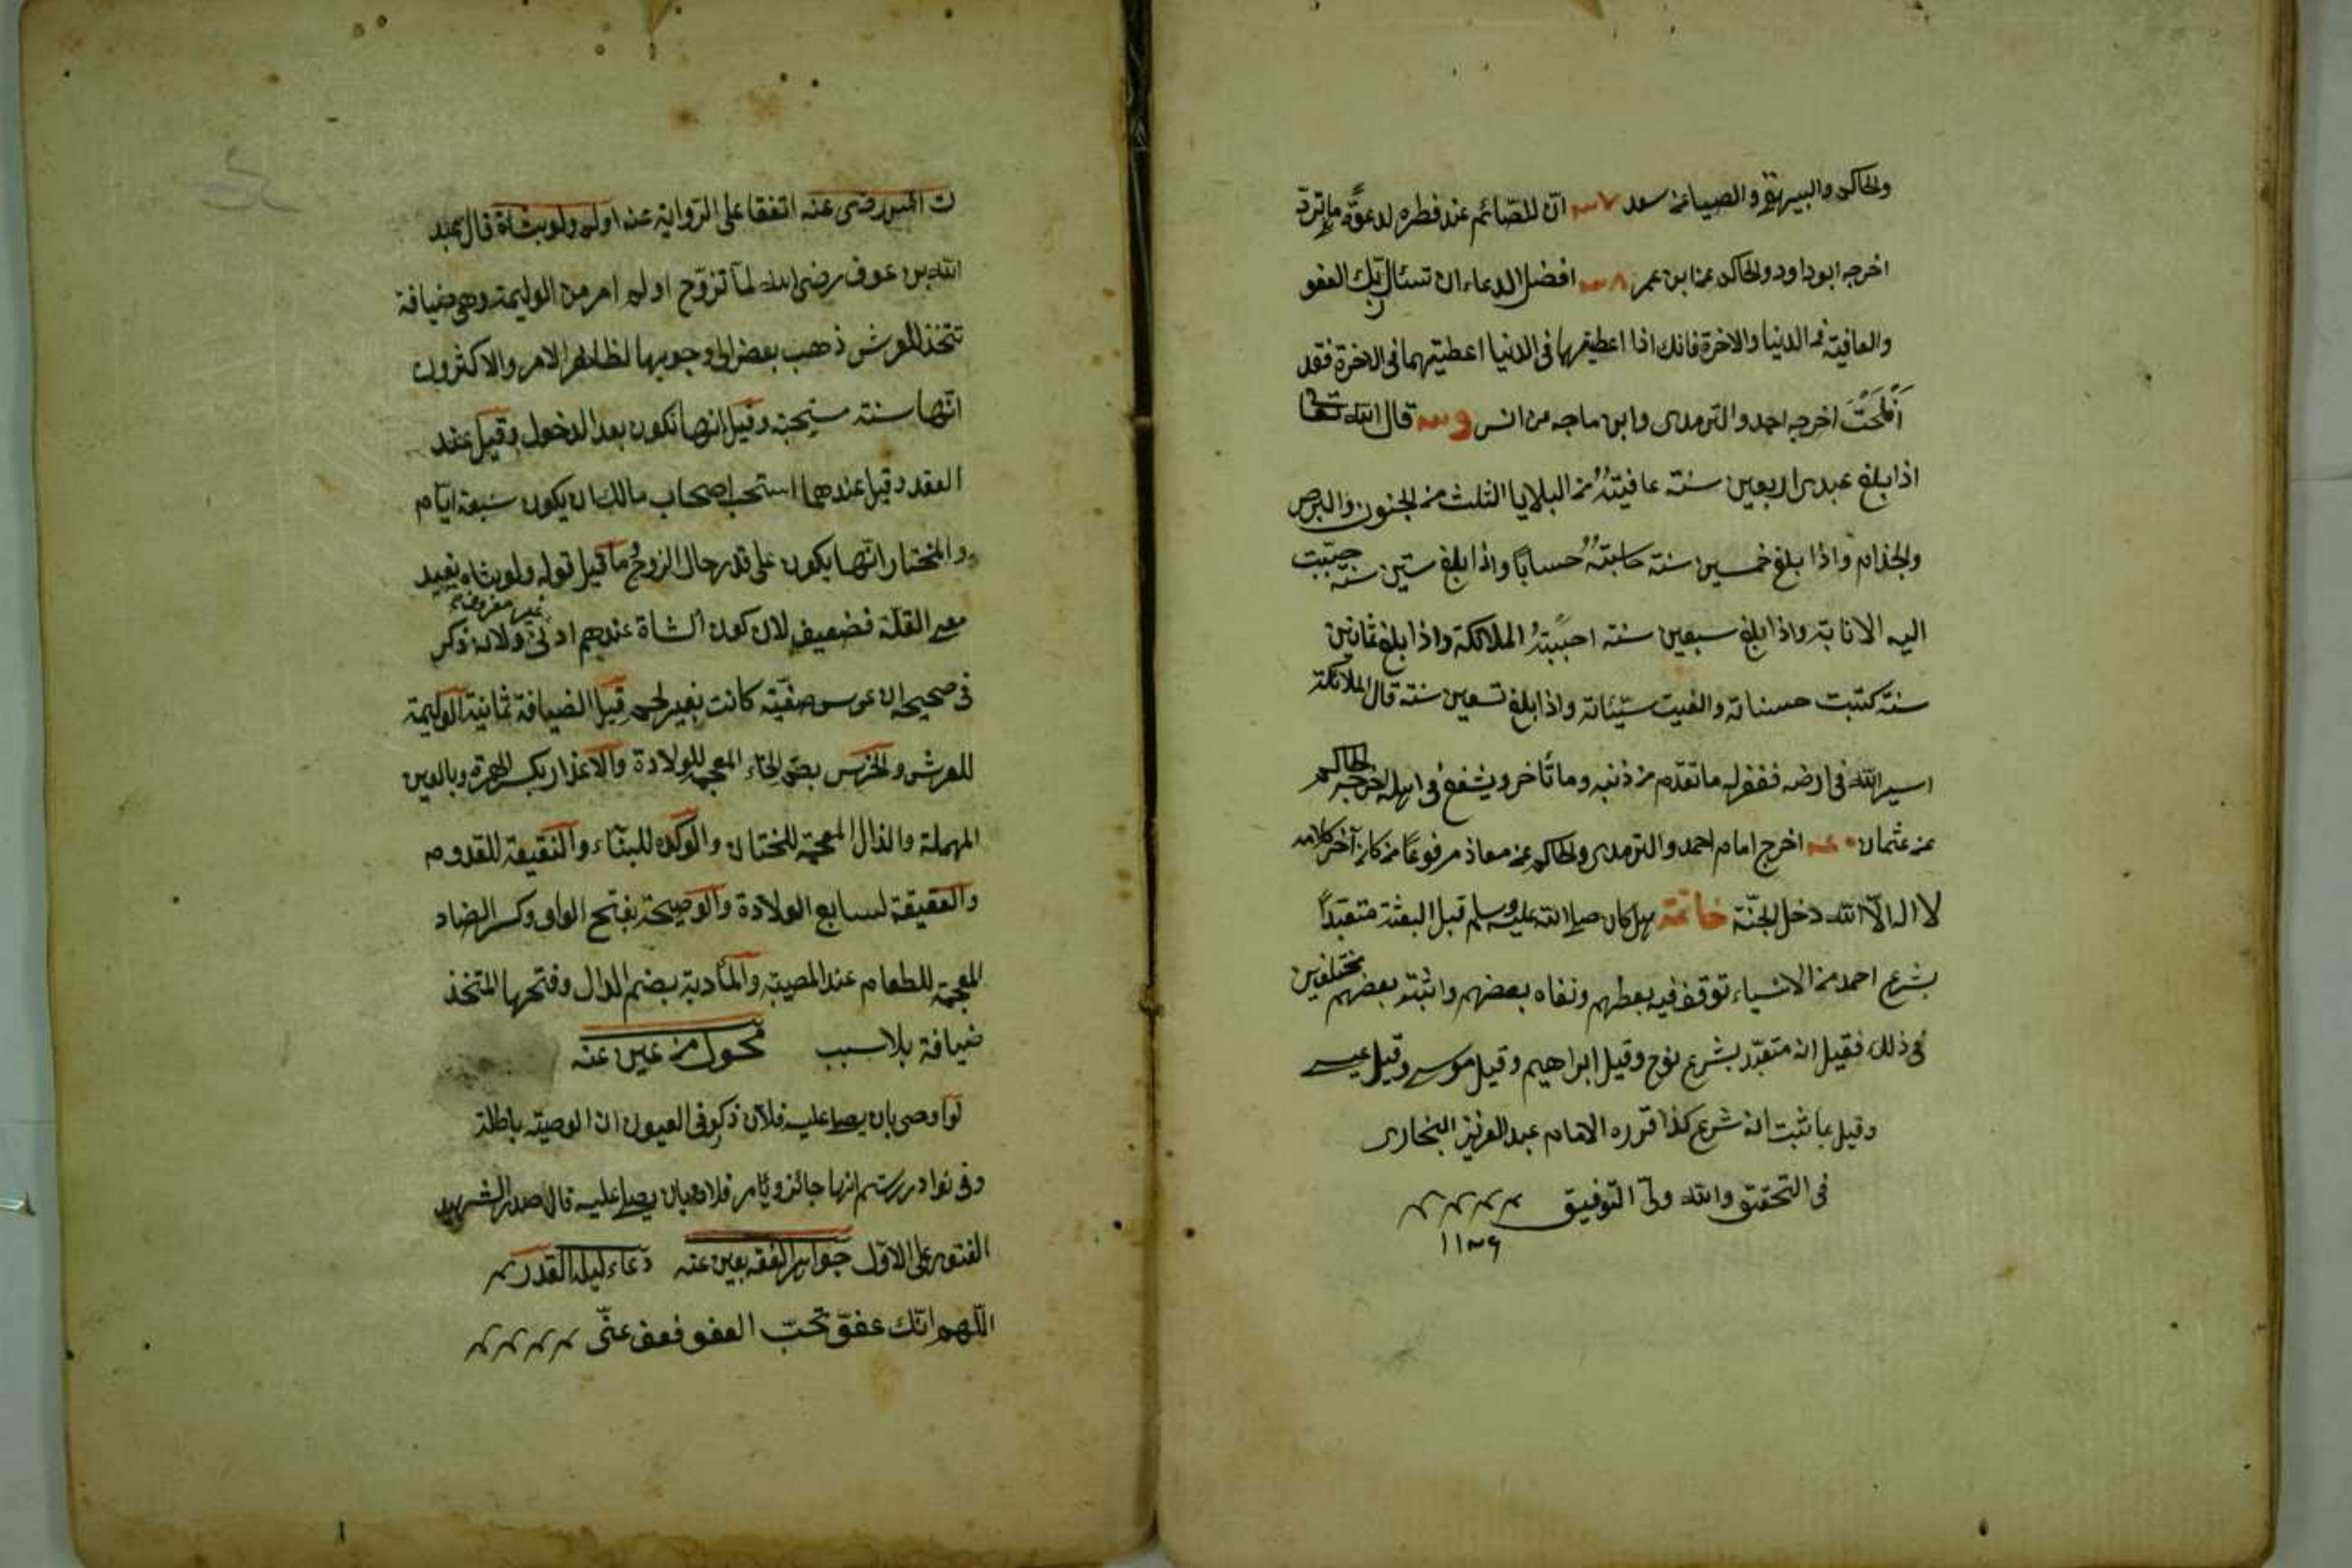 والحاكم والبيهقي والضياء عن سعد ٧ ان للصائم عند فطره لدعوة ما ترد
اخرجه ابو داود والحاكم عن ابن عمر ٨ افضل الدعاء ان تسئال ربك العفو
والعافية في الدنيا والاخرة فانك اذا اعطيتهما في الدنيا اعطيتهما في الاخرة فقد
أفلحتَ اخرجه احمد والترمدى وابن ماجه من انس قال الله تعالى
اذا بلغ عبدى اربعين سنة عافيته من البلايا الثلث من الجنون والبرص
والجذام واذا بلغ خمسين سنة حاسبته حسابًا واذا بلغ ستين سنة حببت
اليه الانابة واذا بلغ سبعين سنة احببته الملائكة واذا بلغ ثمانين
سنة كتبت حسناته والقيت سيئاته واذا بلغ تسعين سنة قال الملائكة
اسير الله في ارضه فغفر له ما تقدم من ذنبه وما تأخر ويشفع في اهله اخرجه الحاكم
عن عثمان اخرج امام احمد والترمدى والحاكم عن معاذ مرفوعًا من كان آخر كلامه
لا اله الّا الله دخل الجنّة خاتمة هل كان صلى الله عليه وسلم قبل البعثة متعبّدًا
بشرع احد من الانبياء توقف فيه بعضهم ونفاه بعضهم واثبته بعضهم مختلفين
في ذلك فقيل انه متعبّد بشرع نوح وقيل ابراهيم وقيل موسى وقيل عيسى
وقيل بما ثبت انه شرع كذا قرره الامام عبد العزيز البخارى
في التحقيق والله ولىّ التوفيق
رضى عنه اتفقا على الرّواية عنه اولم ولو بشاة قال لعبد
الله بن عوف رضى الله لمّا تزوّج اولم امر من الوليمة وهى ضيافة
تتخذ للعرش ذهب بعض الى وجوبها لظاهر الامر والاكثرون
انّها سنة مستحبة وقيل انها تكون بعد الدخول وقيل عند
العقد وقيل عندهما استحب اصحاب مالك ان يكون سبعة ايّام
والمختار انّها يكون على قدر حال الزوج ما قيل قوله ولو بشاة يفيد
غير معروفة
معنى القلّة فضعيف لان كون الشاة عندهم ادنى ولانه ذكر
في صحيح ان عرس صفيّة كانت بغير لحم قيل الضيافة ثمانية الوليمة
للعرش والخرس بضم الخاء المعجمة للولادة والاعذار بكسر الهمزة وبالعين
المهملة والذال المعجمة للختان والوكيرة للبنّاء والنقيعة للقدوم
والعقيقة لسابع الولادة والوضيحة بفتح الواو وكسر الضاد
المعجمة للطعام عند المصيبة والمأدبة بضم الدال وفتحها المتخذ
ضيافة بلا سبب محول من عين عنه
لو اوصى بان يصلى عليه فلان ذكر في العيون ان الوصية باطلة
وفي نوادر رستم انها جائز ويأمر فلان بان يصلى عليه قال صدر الشهيد
الفتوى على الاوّل جواهر الفقه بعين عنه دعاء ليلة القدر
اللّهم انّك عفوّ تحبّ العفو فعف عنّى